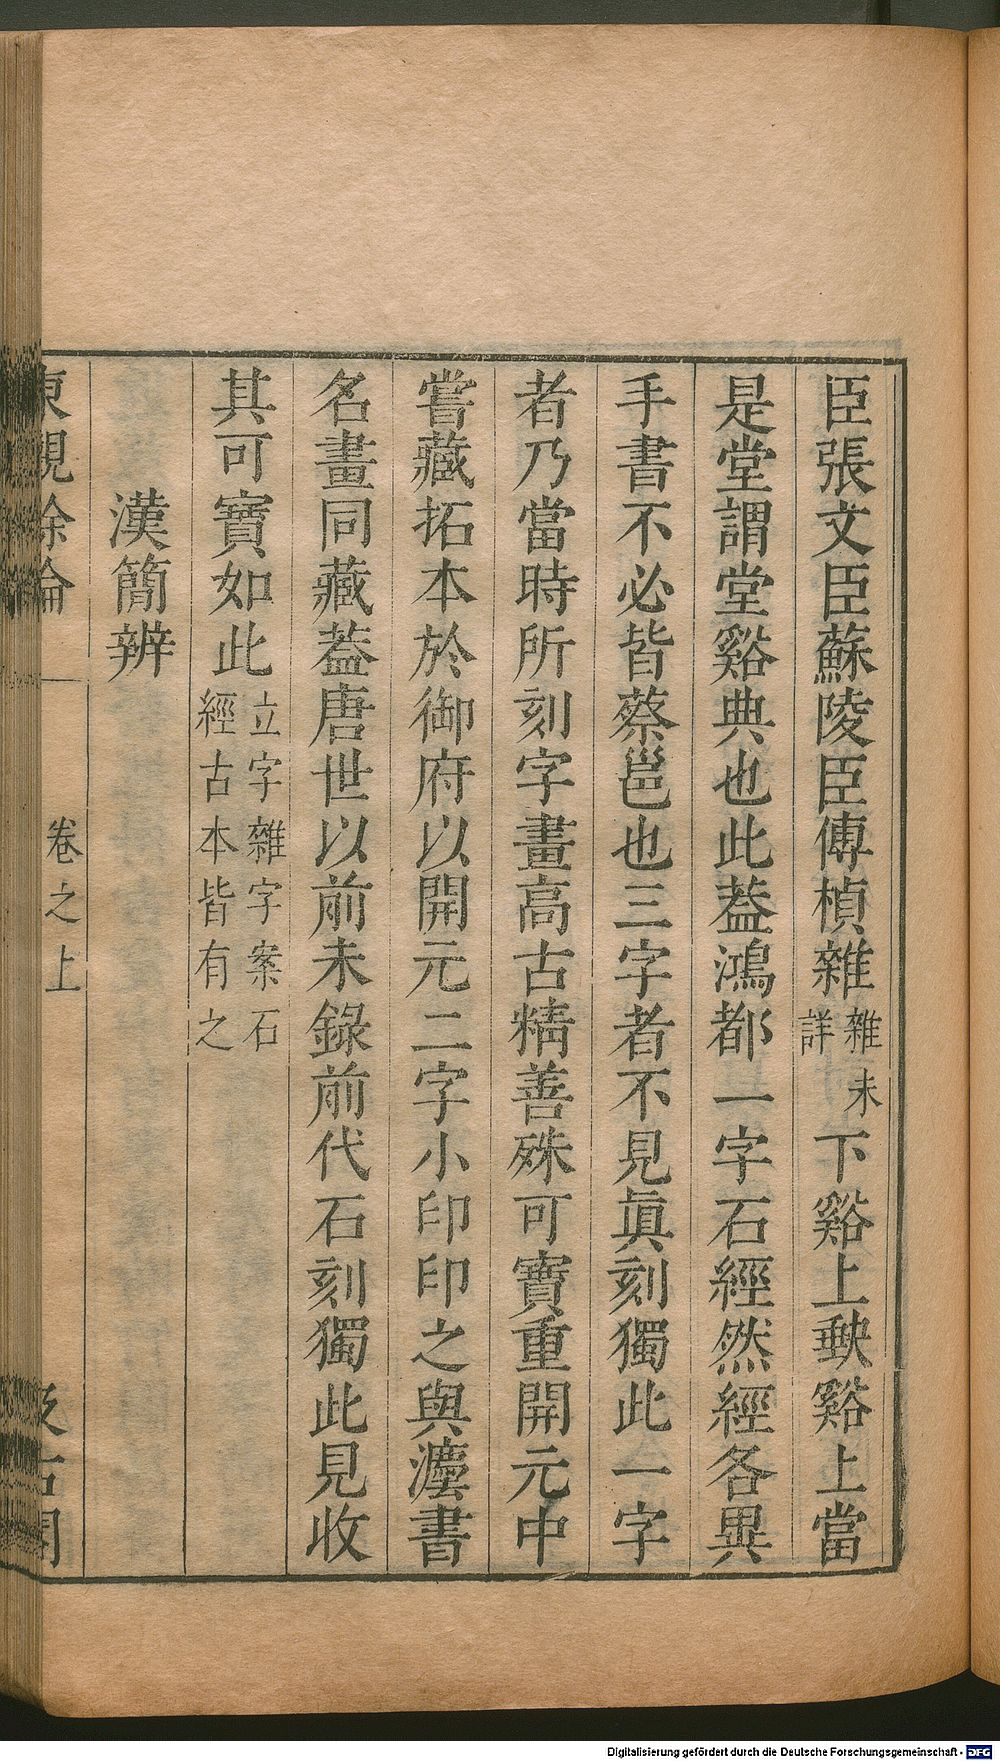 臣張文臣蘇陵臣傅楨雜雜未詳下谿上䩗谿上當
是堂謂堂谿典也此葢鴻都一字石經然經各異
手書不必皆蔡邕也三字者不見眞刻獨此一字
者乃當時所刻字畫高古精善殊可寶重開元中
嘗藏拓本於御府以開元二字小印印之與灋書
名畫同藏葢唐世以前未錄前代石刻獨此見收
其可寶如此立字雜字案石經古本皆有之
漢簡辨
東觀餘論
卷之上
汲古閣
Digitalisierung gefördert durch die Deutsche Forschungsgemeinschaft - DFG